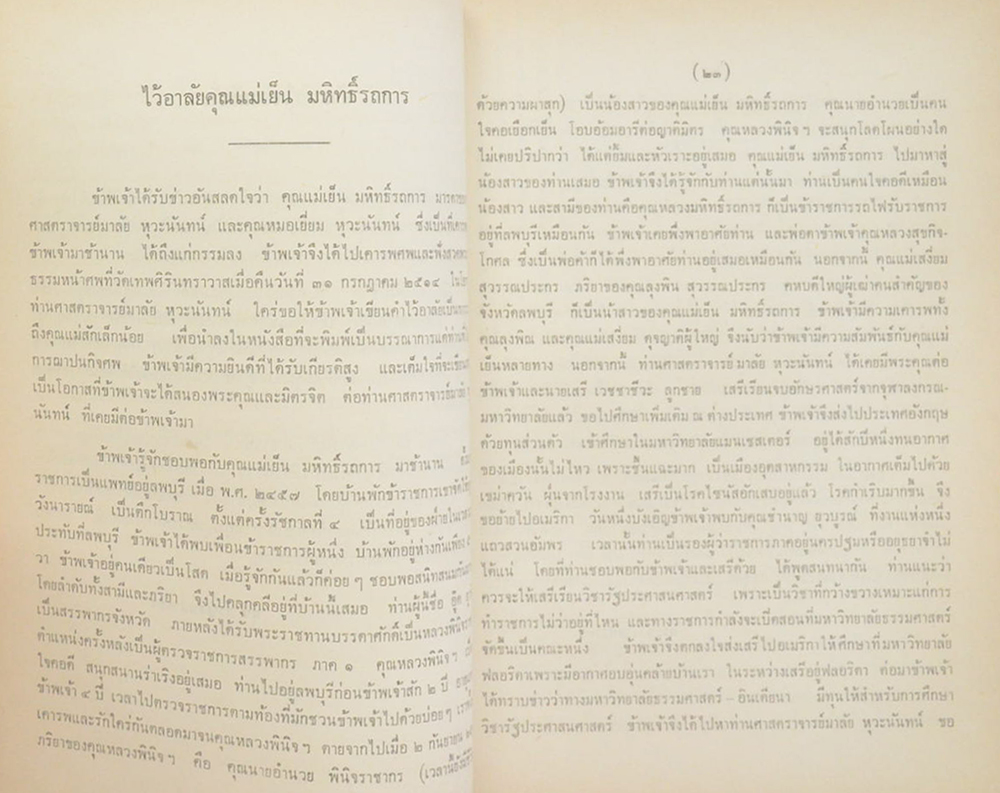 ไว้อาลัยคุณแม่เย็น มหิทธิ์รถการ
ข้าพเจ้าได้รับข่าวอันสลดใจว่า คุณแม่เย็น มหิทธิ์รถการ
ศาสตราจารย์มาลัย หุวะนันทน์ และคุณหมอเยี่ยม หุวะนันทน์ ซึ่งเป็นที่
ข้าพเจ้ามาช้านาน ได้ถึงแก่กรรมลง ข้าพเจ้าจึงได้ไปเคารพศพและฟังสวด
ธรรมหน้าศพที่วัดเทพศิรินทราวาสเมื่อคืนวันที่ ๓๑ กรกฎาคม ๒๕๑๔
ท่านศาสตราจารย์มาลัย หุวะนันทน์ ใคร่ขอให้ข้าพเจ้าเขียนคำไว้อาลัย
ถึงคุณแม่สักเล็กน้อย เพื่อนำลงในหนังสือที่จะพิมพ์เป็นบรรณาการแด่
การฌาปนกิจศพ ข้าพเจ้ามีความยินดีที่ได้รับเกียรติสูง และเต็มใจที่จะ
เป็นโอกาสที่ข้าพเจ้าจะได้สนองพระคุณและมิตรจิต ต่อท่านศาสตราจารย์มาลัย
นันทน์ ที่เคยมีต่อข้าพเจ้ามา
ข้าพเจ้ารู้จักชอบพอกับคุณแม่เย็น มหิทธิ์รถการ มาช้านาน
ราชการเป็นแพทย์อยู่ลพบุรี เมื่อ พ.ศ. ๒๔๕๗ โดยบ้านพักข้าราชการเขาจัดให้
วังนารายณ์ เป็นตึกโบราณ ตั้งแต่ครั้งรัชกาลที่ ๔ เป็นที่อยู่ของฝ่ายใน
ประทับที่ลพบุรี ข้าพเจ้าได้พบเพื่อนข้าราชการผู้หนึ่ง บ้านพักอยู่ห่างกันเพียง
วา ข้าพเจ้าอยู่คนเดียวเป็นโสด เมื่อรู้จักกันแล้วก็ค่อย ๆ ชอบพอสนิทสนม
โดยลำดับทั้งสามีและภริยา จึงไปคลุกคลีอยู่ที่บ้านนี้เสมอ ท่านผู้นี้ชื่อ
เป็นสรรพากรจังหวัด ภายหลังได้รับพระราชทานบรรดาศักดิ์เป็นหลวงพินิจ
ตำแหน่งครั้งหลังเป็นผู้ตรวจราชการสรรพากร ภาค ๑ คุณหลวงพินิจ ฯ
ใจคอดี สนุกสนานร่าเริงอยู่เสมอ ท่านไปอยู่ลพบุรีก่อนข้าพเจ้าสัก ๒ ปี
ข้าพเจ้า ๔ ปี เวลาไปตรวจราชการตามท้องที่มักชวนข้าพเจ้าไปด้วยบ่อย ๆ
เคารพและรักใคร่กันตลอดมาจนคุณหลวงพินิจ ฯ ตายจากไปเมื่อ ๒ กันยายน
ภริยาของคุณหลวงพินิจ ฯ คือ คุณนายอำนวย พินิจราชากร
(๒๓)
ด้วยความผาสุก) เป็นน้องสาวของคุณแม่เย็น มหิทธิ์รถการ คุณนายอำนวยเป็นคน
ใจคอเยือกเย็น โอบอ้อมอารีต่อญาติมิตร คุณหลวงพินิจ ฯ จะสนุกโลดโผนอย่างใด
ไม่เคยปริปากว่า ได้แต่ยิ้มและหัวเราะอยู่เสมอ คุณแม่เย็น มหิทธิ์รถการ ไปมาหาสู่
น้องสาวของท่านเสมอ ข้าพเจ้าจึงได้รู้จักกับท่านแต่นั้นมา ท่านเป็นคนใจคอดีเหมือน
น้องสาว และสามีของท่านคือคุณหลวงมหิทธิ์รถการ ก็เป็นข้าราชการรถไฟรับราชการ
อยู่ที่ลพบุรีเหมือนกัน ข้าพเจ้าเคยพึ่งพาอาศัยท่าน และพ่อตาข้าพเจ้าคุณหลวงสุขกิจ-
โกศล ซึ่งเป็นพ่อค้าก็ได้พึ่งพาอาศัยท่านอยู่เสมอเหมือนกัน นอกจากนี้ คุณแม่เสงี่ยม
สุวรรณประกร ภริยาของคุณลุงพิน สุวรรณประกร คหบดีใหญ่ผู้เฒ่าคนสำคัญของ
จังหวัดลพบุรี ก็เป็นน้าสาวของคุณแม่เย็น มหิทธิ์รถการ ข้าพเจ้ามีความเคารพทั้ง
คุณลุงพิณ และคุณแม่เสงี่ยม ดุจญาติผู้ใหญ่ จึงนับว่าข้าพเจ้ามีความสัมพันธ์กับคุณแม่
เย็นหลายทาง นอกจากนี้ ท่านศาสตราจารย์มาลัย หุวะนันทน์ ได้เคยมีพระคุณต่อ
ข้าพเจ้าและนายเสรี เวชชาชีวะ ลูกชาย เสรีเรียนจบอักษรศาสตร์จากจุฬาลงกรณ-
มหาวิทยาลัยแล้ว ขอไปศึกษาเพิ่มเติม ณ ต่างประเทศ ข้าพเจ้าจึงส่งไปประเทศอังกฤษ
ด้วยทุนส่วนตัว เข้าศึกษาในมหาวิทยาลัยแมนเชสเตอร์ อยู่ได้สักปีหนึ่งทนอากาศ
ของเมืองนั้นไม่ไหว เพราะชื้นแฉะมาก เป็นเมืองอุตสาหกรรม ในอากาศเต็มไปด้วย
เขม่าควัน ฝุ่นจากโรงงาน เสรีเป็นโรคไซนัสอักเสบอยู่แล้ว โรคกำเริบมากขึ้น จึง
ขอย้ายไปอเมริกา วันหนึ่งบังเอิญข้าพเจ้าพบกับคุณชำนาญ ยุวบูรณ์ ที่งานแห่งหนึ่ง
แถวสวนอัมพร เวลานั้นท่านเป็นรองผู้ว่าราชการภาคอยู่นครปฐมหรืออยุธยาจำไม่
ได้แน่ โดยที่ท่านชอบพอกับข้าพเจ้าและเสรีด้วย ได้พูดสนทนากัน ท่านแนะว่า
ควรจะให้เสรีเรียนวิชารัฐประศาสนศาสตร์ เพราะเป็นวิชาที่กว้างขวางเหมาะแก่การ
ทำราชการไม่ว่าอยู่ที่ไหน และทางราชการกำลังจะเปิดสอนที่มหาวิทยาลัยธรรมศาสตร์
จัดขึ้นเป็นคณะหนึ่ง ข้าพเจ้าจึงตกลงใจส่งเสรีไปอเมริกาให้ศึกษาที่มหาวิทยาลัย
ฟลอริดาเพราะมีอากาศอบอุ่นคล้ายบ้านเรา ในระหว่างเสรีอยู่ฟลอริดา ต่อมาข้าพเจ้า
ได้ทราบข่าวว่าทางมหาวิทยาลัยธรรมศาสตร์ – อินเดียนา มีทุนให้สำหรับการศึกษา
วิชารัฐประศาสนศาสตร์ ข้าพเจ้าจึงได้ไปหาท่านศาสตราจารย์มาลัย หุวะนันทน์ ขอ